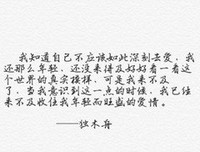 我知道自己不应该如此深刻去爱，我
还那么年轻，还没来得及好好看一看这
个世界的真实模样，可是我来不及
了，当我意识到这一点的时候，我已经
来不及收住我年轻而旺盛的爱情。
——独木舟